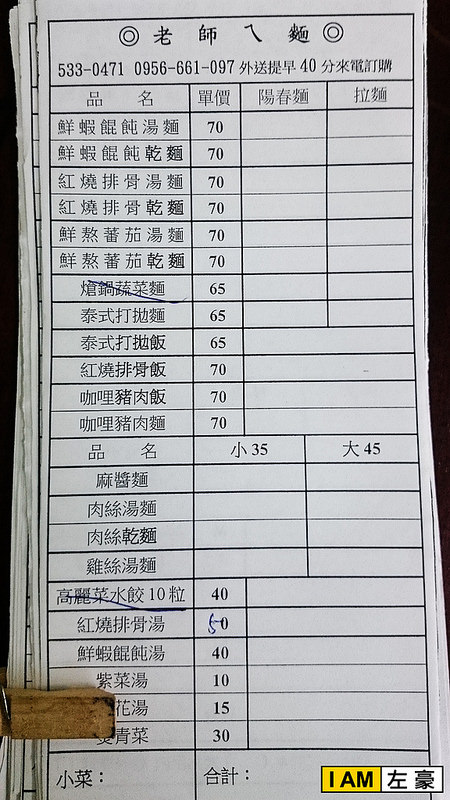 ◎ 老 師 ㄟ 麵 ◎
533-0471 0956-661-097 外送提早 40 分來電訂購
品 名 單價 陽春麵 拉麵
鮮蝦餛飩湯麵 70
鮮蝦餛飩乾麵 70
紅燒排骨湯麵 70
紅燒排骨乾麵 70
鮮熬蕃茄湯麵 70
鮮熬蕃茄乾麵 70
熗鍋蔬菜麵 65
泰式打拋麵 65
泰式打拋飯 65
紅燒排骨飯 70
咖哩豬肉飯 70
咖哩豬肉麵 70
品 名 小 35 大 45
麻醬麵
肉絲湯麵
肉絲乾麵
雞絲湯麵
高麗菜水餃 10 粒 40
紅燒排骨湯 50
鮮蝦餛飩湯 40
紫菜湯 10
花湯 15
青菜 30
小菜： 合計：
I AM 左豪